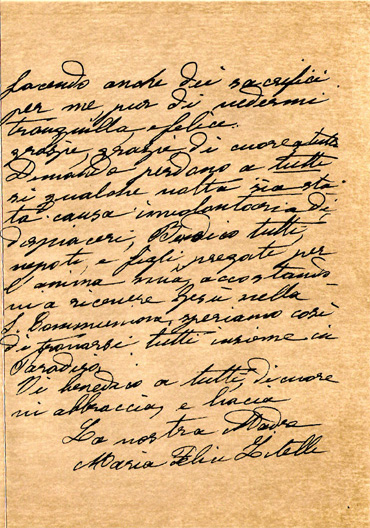 facendo anche dei sacrifici
per me pur di vedermi
tranquilla e felice.
grazie, grazie di cuore a tutti
Dimando perdono a tutti
si qualche volta sia sta-
ta causa involontaria di
dispiaceri, Benedico tutti,
nepoti, e figli, pregate per
l'anima mia, accostando
vi a ricevere Gesu nella
S. Communione, speriamo così
di trovarsi tutti insieme in
Paradiso,
Vi benedico a tutti, di cuore
vi abbraccia, e bacia
La vostra Madre
Maria